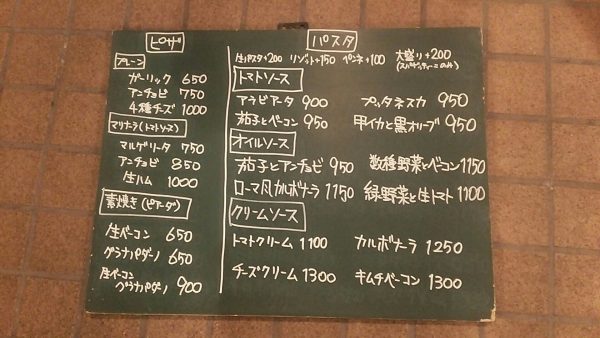 ピザ
プレーン
ガーリック 650
アンチョビ 750
4種チーズ 1000
マリナーラ(トマトソース)
マルゲリータ 750
アンチョビ 850
生ハム 1000
素焼き(ピアーダ)
生ベーコン 650
グラナパダーノ 650
生ベーコン
グラナパダーノ 900
パスタ
生パスタ+200 リゾット+150 ペンネ+100 大盛り+200
(スパゲッティーニのみ)
トマトソース
アラビアータ 900 プッタネスカ 950
茄子とベーコン 950 甲イカと黒オリーブ 950
オイルソース
茄子とアンチョビ 950 数種野菜とベーコン 1150
ローマ風カルボナーラ 1150 緑野菜と生トマト 1100
クリームソース
トマトクリーム 1100 カルボナーラ 1250
チーズクリーム 1300 キムチベーコン 1300